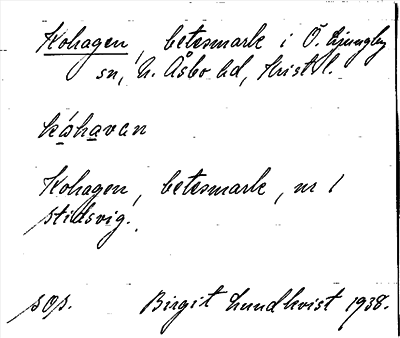 Kohagen, betesmark i Ö. Ljungby
sn, N. Åsbo hd, Krist l.
kåhavan
Kohagen, betesmark, nr 1
Stidsvig.
sop. Birgit Lundkvist 1938.